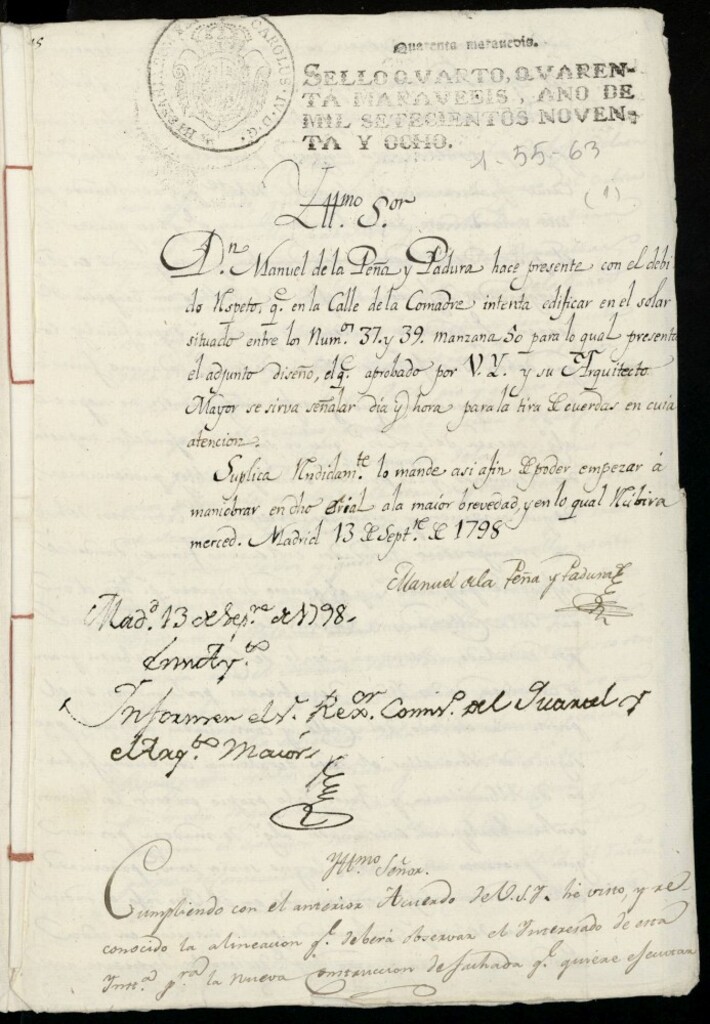 Quarenta maravedis.
CAROLUS·IV·D·G·
SELLO QVARTO, QVAREN-
TA MARAVEDIS, AÑO DE
MIL SETECIENTOS NOVEN-
TA Y OCHO.
1-55-63
(1)
Yll.mo S.or
D.n Manuel de la Peña y Padura hace presente con el debi
do Rspeto, q.e en la Calle de la Comadre intenta edificar en el solar
situado entre los Num.os 37. y 39. manzana 50 para lo qual presenta
el adjunto diseño, el q.e aprobado por V. Y. y su Arquitecto
Mayor se sirva señalar dia y hora para la tira de cuerdas en cuia
atencion.
Suplica Rndidam.te lo mande asi afin de poder empezar á
maniobrar en dho sitial ala maior brevedad, y en lo qual Rcibira
merced. Madrid 13 de Sept.re de 1798
Manuel de la Peña y Padura
Mad.d 13 de Sep.re de 1798.
En mi Ay.to
Informen el S.r Rex.or Comis.o del Quartel y
el Arq.to Maior
Yll.mo Señor.
Cumpliendo con el anterior Acuerdo de V.S.Y. he visto, y re-
conocido la alineacion q.e deberá observar el Interesado de esta
Inst.a p.ra la nueva Construccion de fachada q.e quiere esecutar